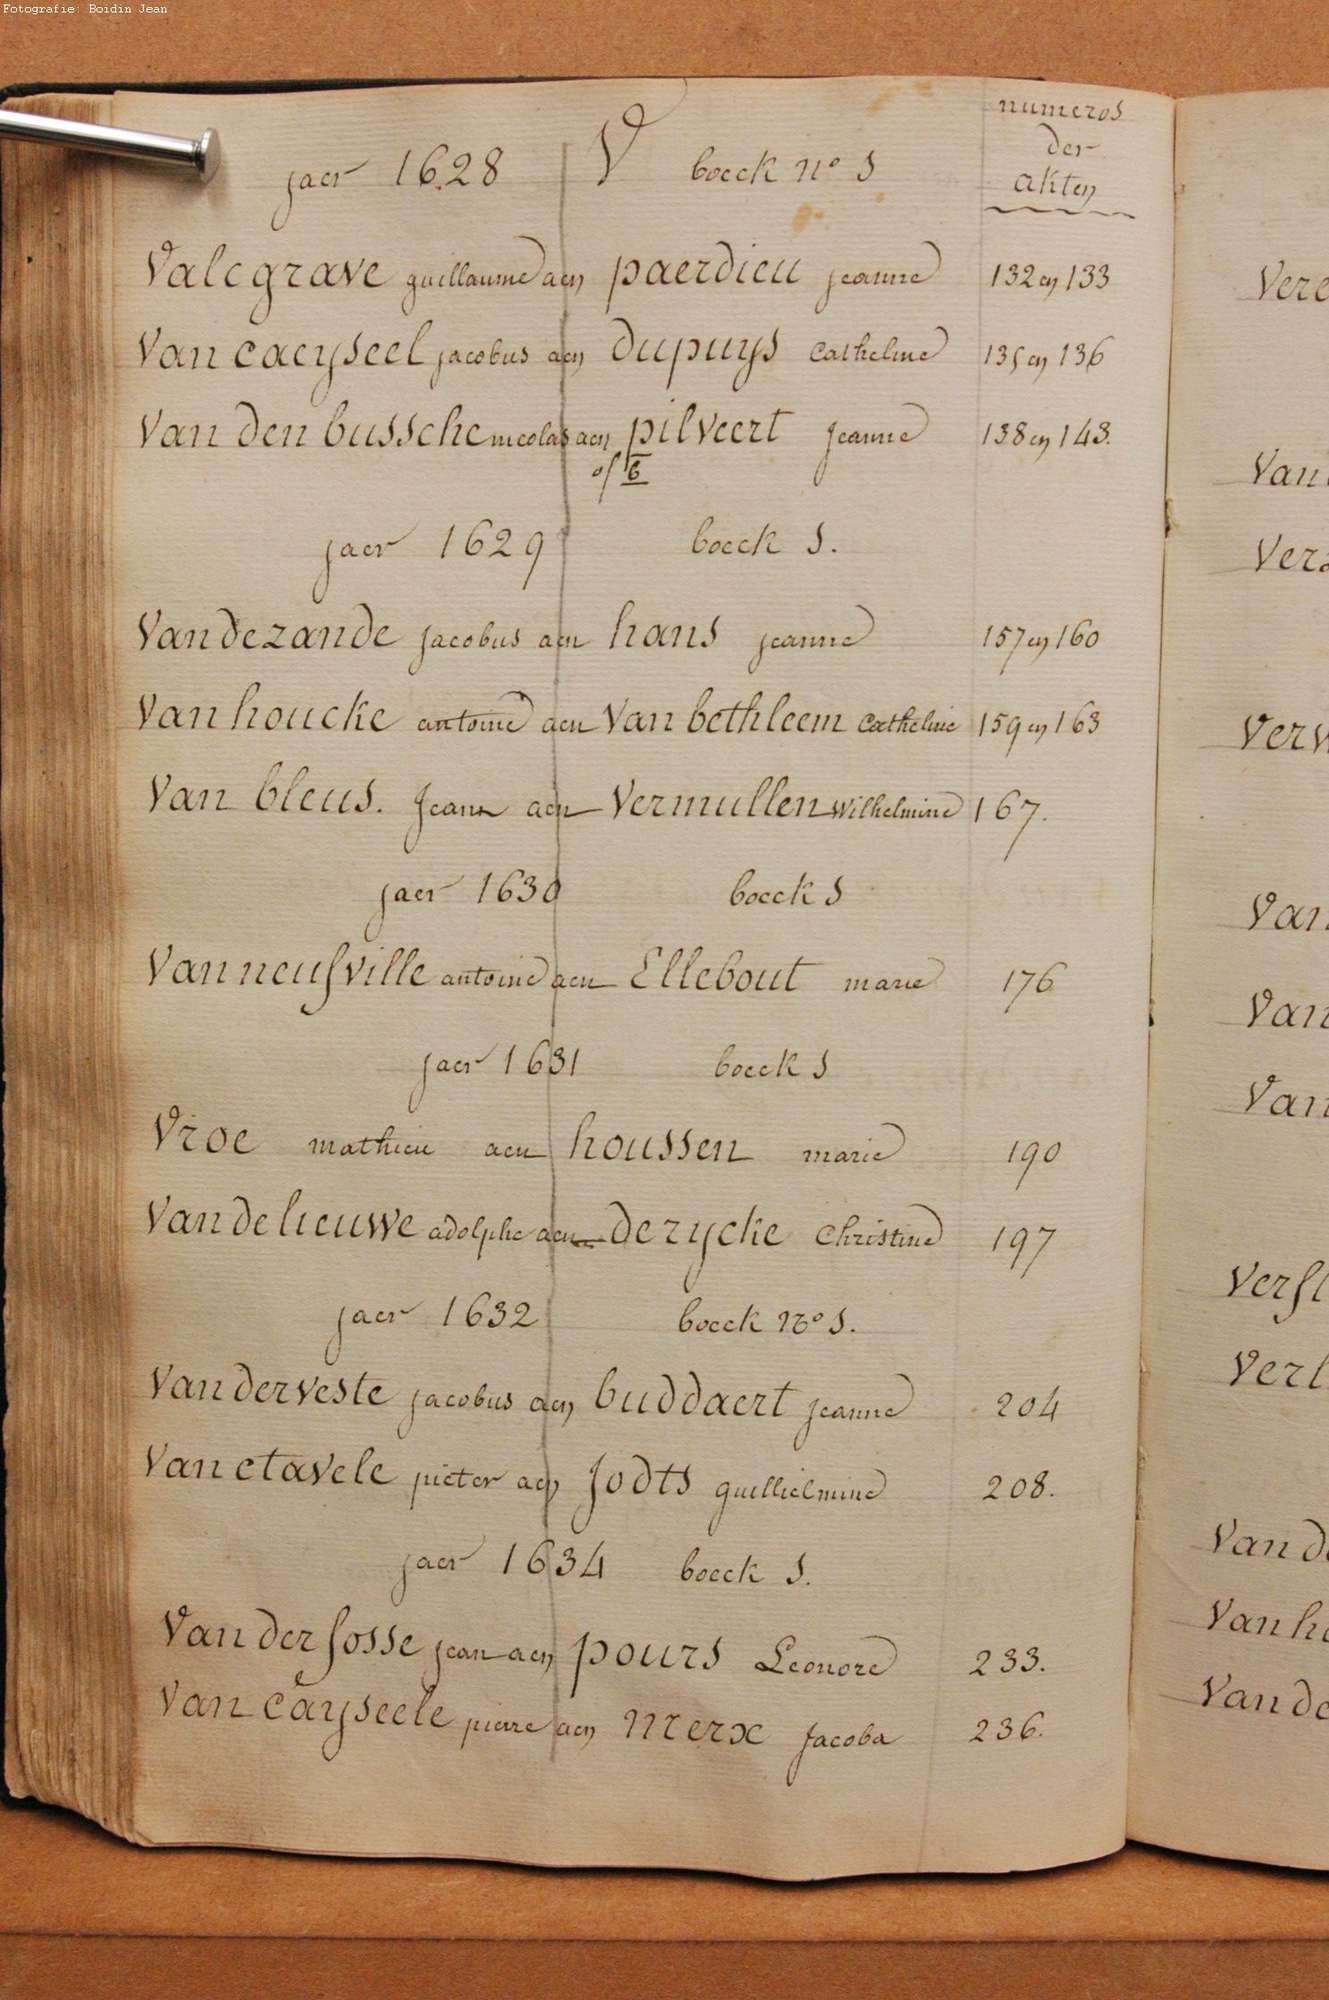 Fotografie: Boidin Jean
numeros
der
akten
jaer 1628 V boeck n° 5
Valegrave guillaume aen paerdieu jeanne 132 en 133
Van caeyseel jacobus aen dupuys catheline 135 en 136
Van den bussche nicolas aen pilveert jeanne 138 en 143.
of b
jaer 1629 boeck 5.
Van de zande jacobus aen hans jeanne 157 en 160
Van houcke antoine aen Van bethleem catheline 159 en 163
Van bleus. Jean aen Vermullen wilhelmine 167.
jaer 1630 boeck 5
Van neufville antoine aen Ellebout marie 176
jaer 1631 boeck 5
Vroe mathieu aen houssen marie 190
Van de lieuwe adolphe aen de rycke christine 197
jaer 1632 boeck n° 5.
Van der veste jacobus aen buddaert jeanne 204
Van etavele pieter aen Jodts guillielmine 208.
jaer 1634 boeck 5.
Van der fosse jean aen pours Leonore 233.
Van cayseele pierre aen Merx Jacoba 236.
Vere
Van
Ver
Verv
Van
Van
Van
Verfl
Verl
Van de
Van h
Van de